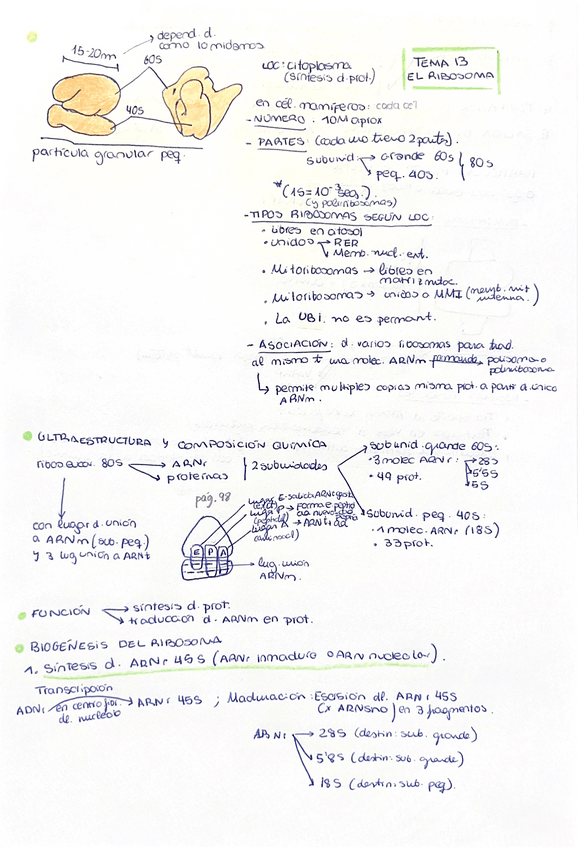 15-20nm
depend. d.
como lo midamos
60S
40S
partícula granular peq.
TEMA 13
EL RIBOSOMA
LOC: citoplasma
(síntesis d. prot.)
en cél. mamíferos: cada cél
- NÚMERO: 10M aprox
- PARTES (cada uno tiene 2 partes).
subunid → grande 60S
peq. 40S.
80S
*(1S = 10⁻³ seg.)
(y polirribosomas)
- TIPOS RIBOSOMAS SEGÚN LOC:
• Libres en citosol
• Unidos → RER
Memb. nucl. ext.
• Mitoribosomas → libres en
matriz mitoc.
• Mitoribosomas → unidos a MMI (memb. mit
interna.)
• La UBI. no es permant.
- ASOCIACIÓN: d. varios ribosomas para trad.
al mismo t una molec. ARNm formando polisoma o
polirribosoma
↳ permite multiples copias misma prot. a partir d. único
ARNm.
• ULTRAESTRUCTURA Y COMPOSICIÓN QUÍMICA
ribo eucar. 80S → ARNr
proteínas
2 subunidades
subunid. grande 60S:
• 3 molec ARNr: → 28S
5'8S
5S
• 49 prot.
subunid. peq. 40S:
• 1 molec. ARNr (18S)
• 33 prot.
con lugar d. unión
a ARNm (sub. peq.)
y 3 lug unión a ARNt
pág. 98
E P A
lug. unión
ARNm.
• FUNCIÓN → síntesis d. prot.
traducción d. ARNm en prot.
• BIOGÉNESIS DEL RIBOSOMA
1. Síntesis d. ARNr 45S (ARNr inmaduro o ARN nucleolar).
Transcripción
ADNr en centro fibr. de nucleolo → ARNr 45S ; Maduración: Escisión dl. ARNr 45S
(x ARNSno) en 3 fragmentos.
ARNr → 28S (destin: sub. grande)
5'8S (destin: sub. grande)
18S (destin: sub. peq).